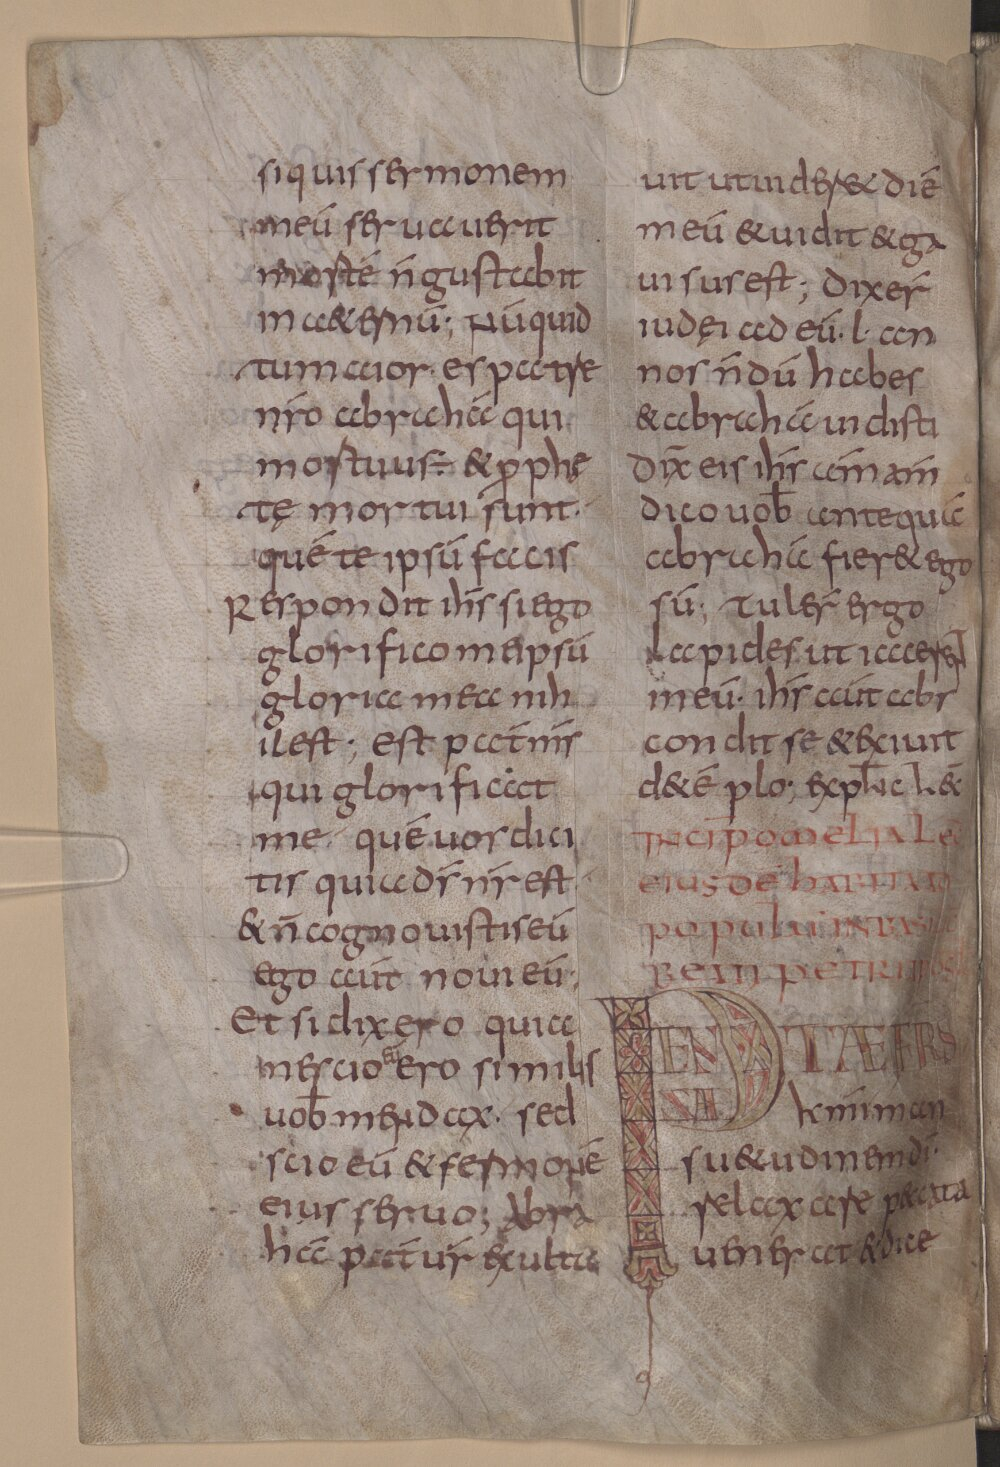 si quis sermonem
meū servaverit
mortē n̄ gustabit
in a&ernū; Nūquid
tu maior es patre
nr̄o abrahā qui
mortuus ÷ & p̱phe
tę mortui sunt·
quē te ipsū facis
Respondit ih̄s si ego
glorifico meipsū
gloria mea nih
il est; est pat̄ m̄s
qui glorificat
me· quē vos dici
tis quia d̄s n̄r est·
& n̄ cognovistis eū
ego aūt novi eū·
Et si dixero quia
nescio eū ero similis
vob̄ mendax· sed
scio eū & sermonē
eius servo; Abra
hā pat̄ v̄r exulta
vit ut vider& diē
meū & vidit & ga
visus est; dixer̄
iudęi ad eū· l· an
nos n̄dū habes
& abrahā vidisti
dix̄ eis ih̄s am̄ am̄
dico vob̄ antequā
abrahā fier& ego
sū; Tuler̄ ergo
lapides ut iacer̄
in eū· ih̄s aūt abs
condit se & exivit
de
INCIP OMELIA
EIUSDĒ HABITA
POPULŪ IN BASILI
PETRI
PENSATE FRS
KMI man
su&udinem dī·
relaxare peccata
venerat & dice